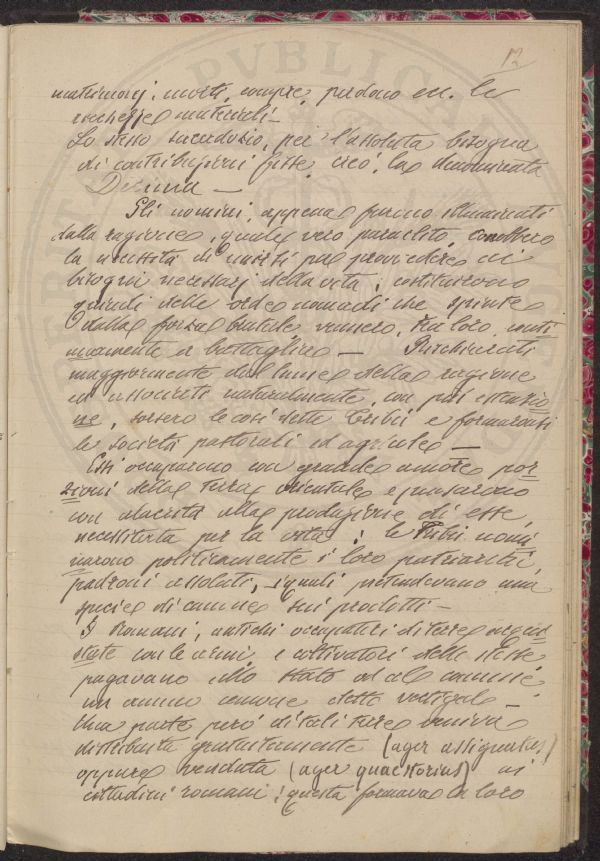 12
matrimonj, morti, compre, perdono ecc. le
ricchezze materiali –
Lo stesso sacerdozio, per l'assoluta bisogna
di contribuzioni fisse creò la denominata
Decima –
Gli uomini, appena furono illuminati
dalla ragione, quale vero paraclito, conobbero
la necessità di unirsi per provvedere ai
bisogni necessarj della vita, costituirono
quindi delle orde nomadi che spinte
dalla forza brutale vennero, tra loro, conti
nuamente a battaglie –
maggiormente dal lume della ragione
ed associati naturalmente, con più estensio
ne, sorsero le così dette Tribù e formaronsi
le società pastorali ed agricole –
Essi occuparono con grande amore por
zioni della terra orientale e pensarono
con alacrità alla produzione di esse,
necessitata per la vita; le Tribù nomi
narono politicamente i loro patriarchi,
padroni assoluti, i quali pretendevano una
specie di canone sui prodotti –
I Romani, antichi occupatori di terre acqui
state con le armi e coltivatori delle stesse
pagavano allo stato ed al comune
un annuo canone detto vectigal –
Una parte però di tali terre veniva
distribuita gratuitamente (ager assignatus)
oppure venduta (ager quaestorius) ai
cittadini romani; questa formava la loro
PVBLICA